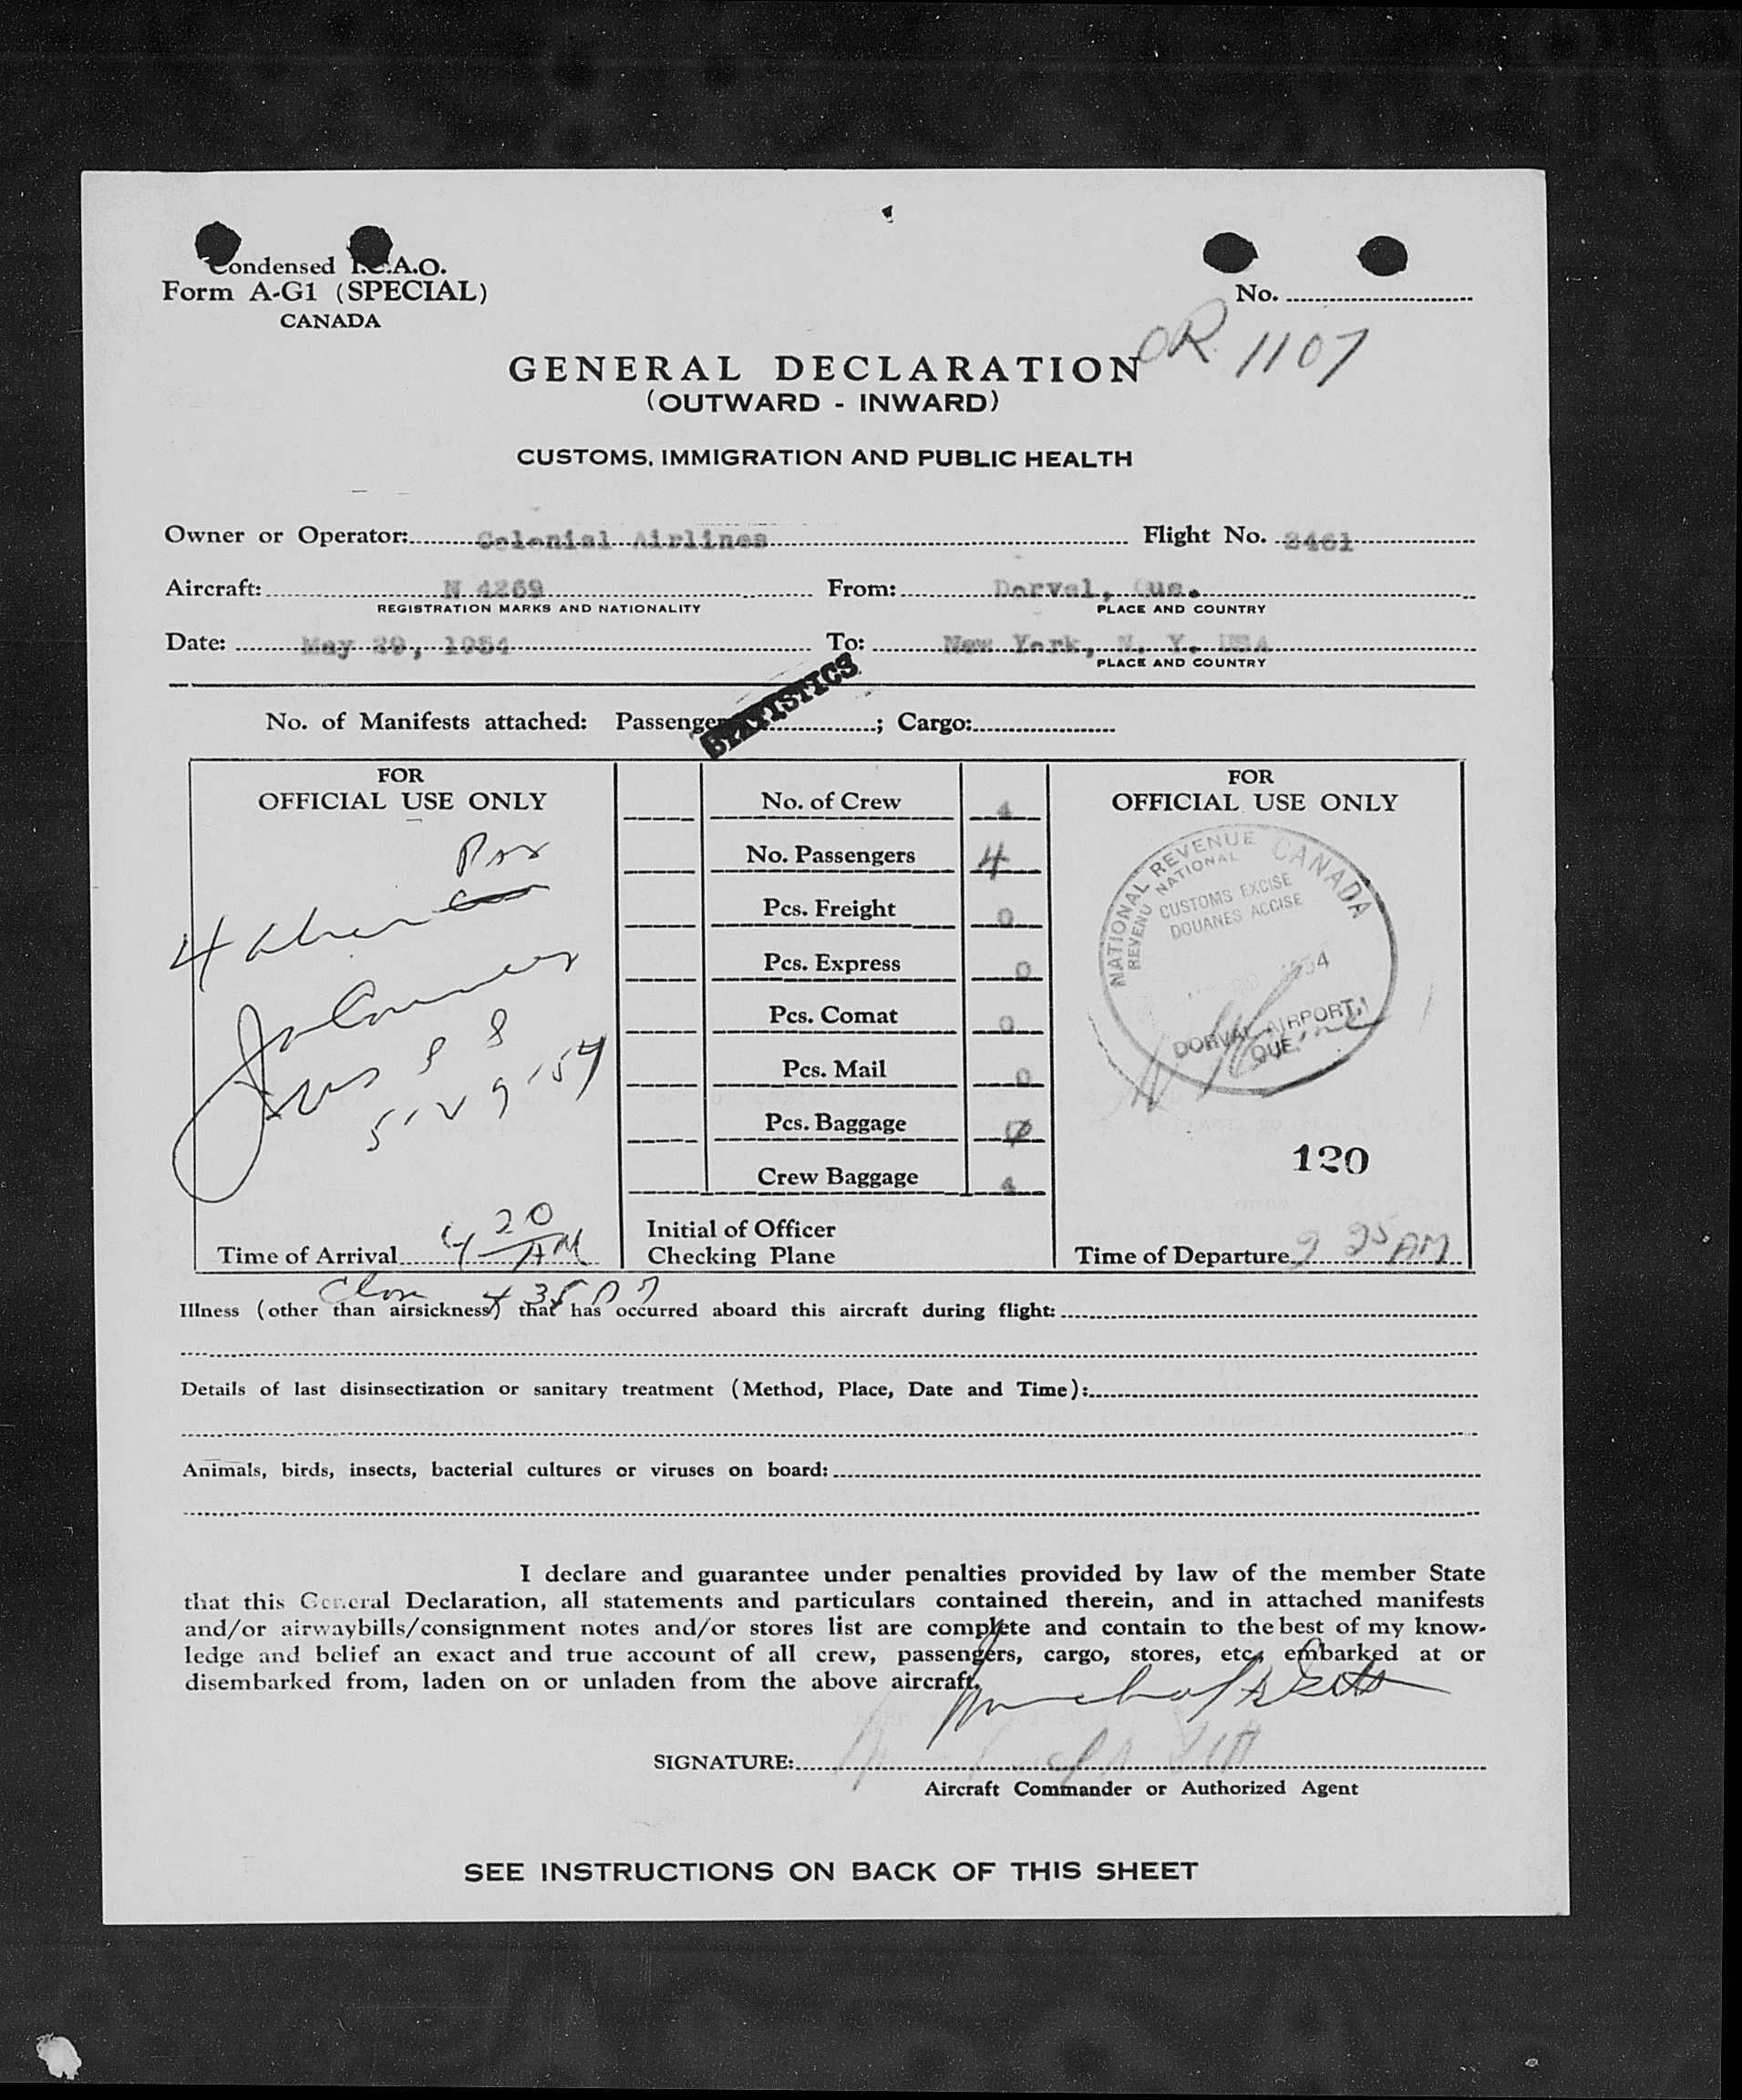 Condensed I.C.A.O.
Form A-G1 (SPECIAL)
CANADA
No.
OR. 1107
GENERAL DECLARATION
(OUTWARD - INWARD)
CUSTOMS, IMMIGRATION AND PUBLIC HEALTH
Owner or Operator: Colonial Airlines Flight No. 2461
Aircraft: N 4269 From: Dorval, Que.
REGISTRATION MARKS AND NATIONALITY PLACE AND COUNTRY
Date: May 29, 1954 To: New York, N. Y. USA
PLACE AND COUNTRY
STATISTICS
No. of Manifests attached: Passenger ; Cargo:
FOR
OFFICIAL USE ONLY
4
5-29-54
Time of Arrival 4 20 AM
No. of Crew 4
No. Passengers 4
Pcs. Freight 0
Pcs. Express 0
Pcs. Comat 0
Pcs. Mail 0
Pcs. Baggage
Crew Baggage 4
Initial of Officer
Checking Plane
FOR
OFFICIAL USE ONLY
NATIONAL REVENUE CANADA
REVENU NATIONAL
CUSTOMS EXCISE
DOUANES ACCISE
1954
DORVAL AIRPORT,
QUE.
120
Time of Departure 9 25 AM
Illness (other than airsickness) that has occurred aboard this aircraft during flight:
Details of last disinsectization or sanitary treatment (Method, Place, Date and Time):
Animals, birds, insects, bacterial cultures or viruses on board:
I declare and guarantee under penalties provided by law of the member State
that this General Declaration, all statements and particulars contained therein, and in attached manifests
and/or airwaybills/consignment notes and/or stores list are complete and contain to the best of my know-
ledge and belief an exact and true account of all crew, passengers, cargo, stores, etc., embarked at or
disembarked from, laden on or unladen from the above aircraft.
SIGNATURE:
Aircraft Commander or Authorized Agent
SEE INSTRUCTIONS ON BACK OF THIS SHEET